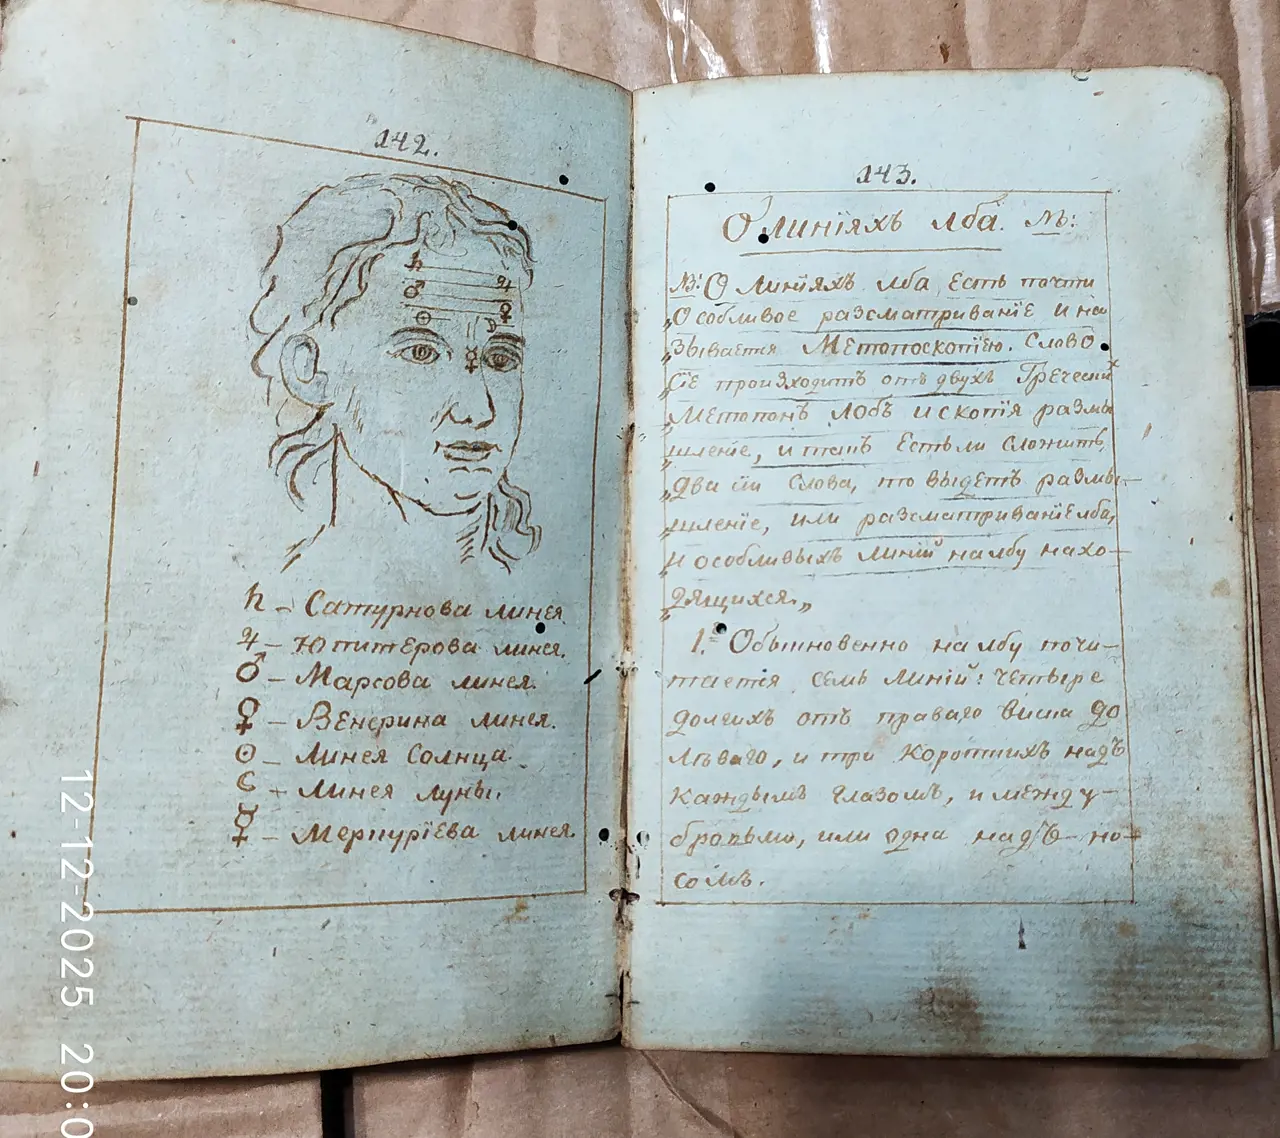 142.
♄ ♃
♂ ♀
☉ ☽
☿
♄ – Сатурнова линея.
♃ – Юпитерова линея.
♂ – Марсова линея.
♀ – Венерина линея.
☉ – Линея Солнца.
☾ – Линея луны.
☿ – Меркурїева линея.
143.
О линїяхъ лба. №:
№: О Линїяхъ лба, Есть почти
„Особливое разсматриванїе и на
„зывается Метопоскопїею. Слово
„сїе произходитъ отъ двухъ Греческий
„Метопонъ лобъ и скопїя размы
„шленїе, и такъ Естьли сложить
„два сїи слова, то выдетъ размы–
„шленїе, или разсматриванїе лба,
„и особливыхъ линїй на лбу нахо–
„дящихся.„
1.е Обыкновенно на лбу почи–
тается семь линїй: четыре
долгихъ отъ праваго виска до
лѣваго, и три короткихъ надъ
каждымъ глазомъ, и между–
бровьми, или одна надъ– но–
сомъ.
12-12-2025 20:0